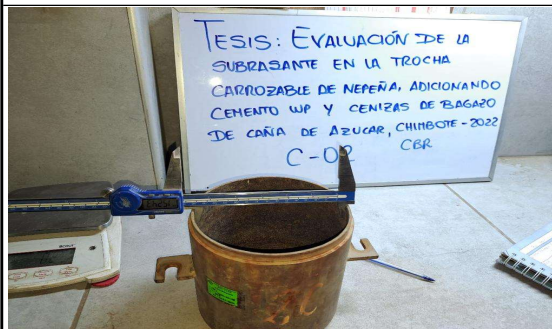 TESIS: EVALUACIÓN DE LA
SUBRASANTE EN LA TROCHA
CARROZABLE DE NEPEÑA, ADICIONANDO
CEMENTO WP Y CENIZAS DE BAGAZO
DE CAÑA DE AZUCAR, CHIMBOTE-2022
C-02 CBR